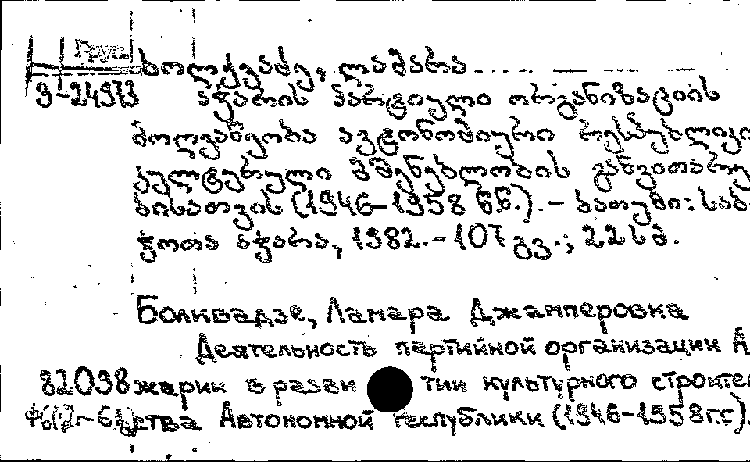 Груз.
ბოლქვაძე, ლამარა
Э-24973 აჭარის პარტიული ორგანიზაციის
მოღვაწეობა ავტონომიური რესპუბლიკი
კულტურული მშენებლობის განვითარე
ბისათვის (1946–1958 წწ.). – ბათუმი: საბ
ჭოთა აჭარა, 1982. – 107 გვ.; 22 სმ.
Болквадзе, Ламара Джамперовка
Деятельность партийной организации А
82038 жарии в разви тии культурного строител
ства Автономной республики (1946–1958 гг.).